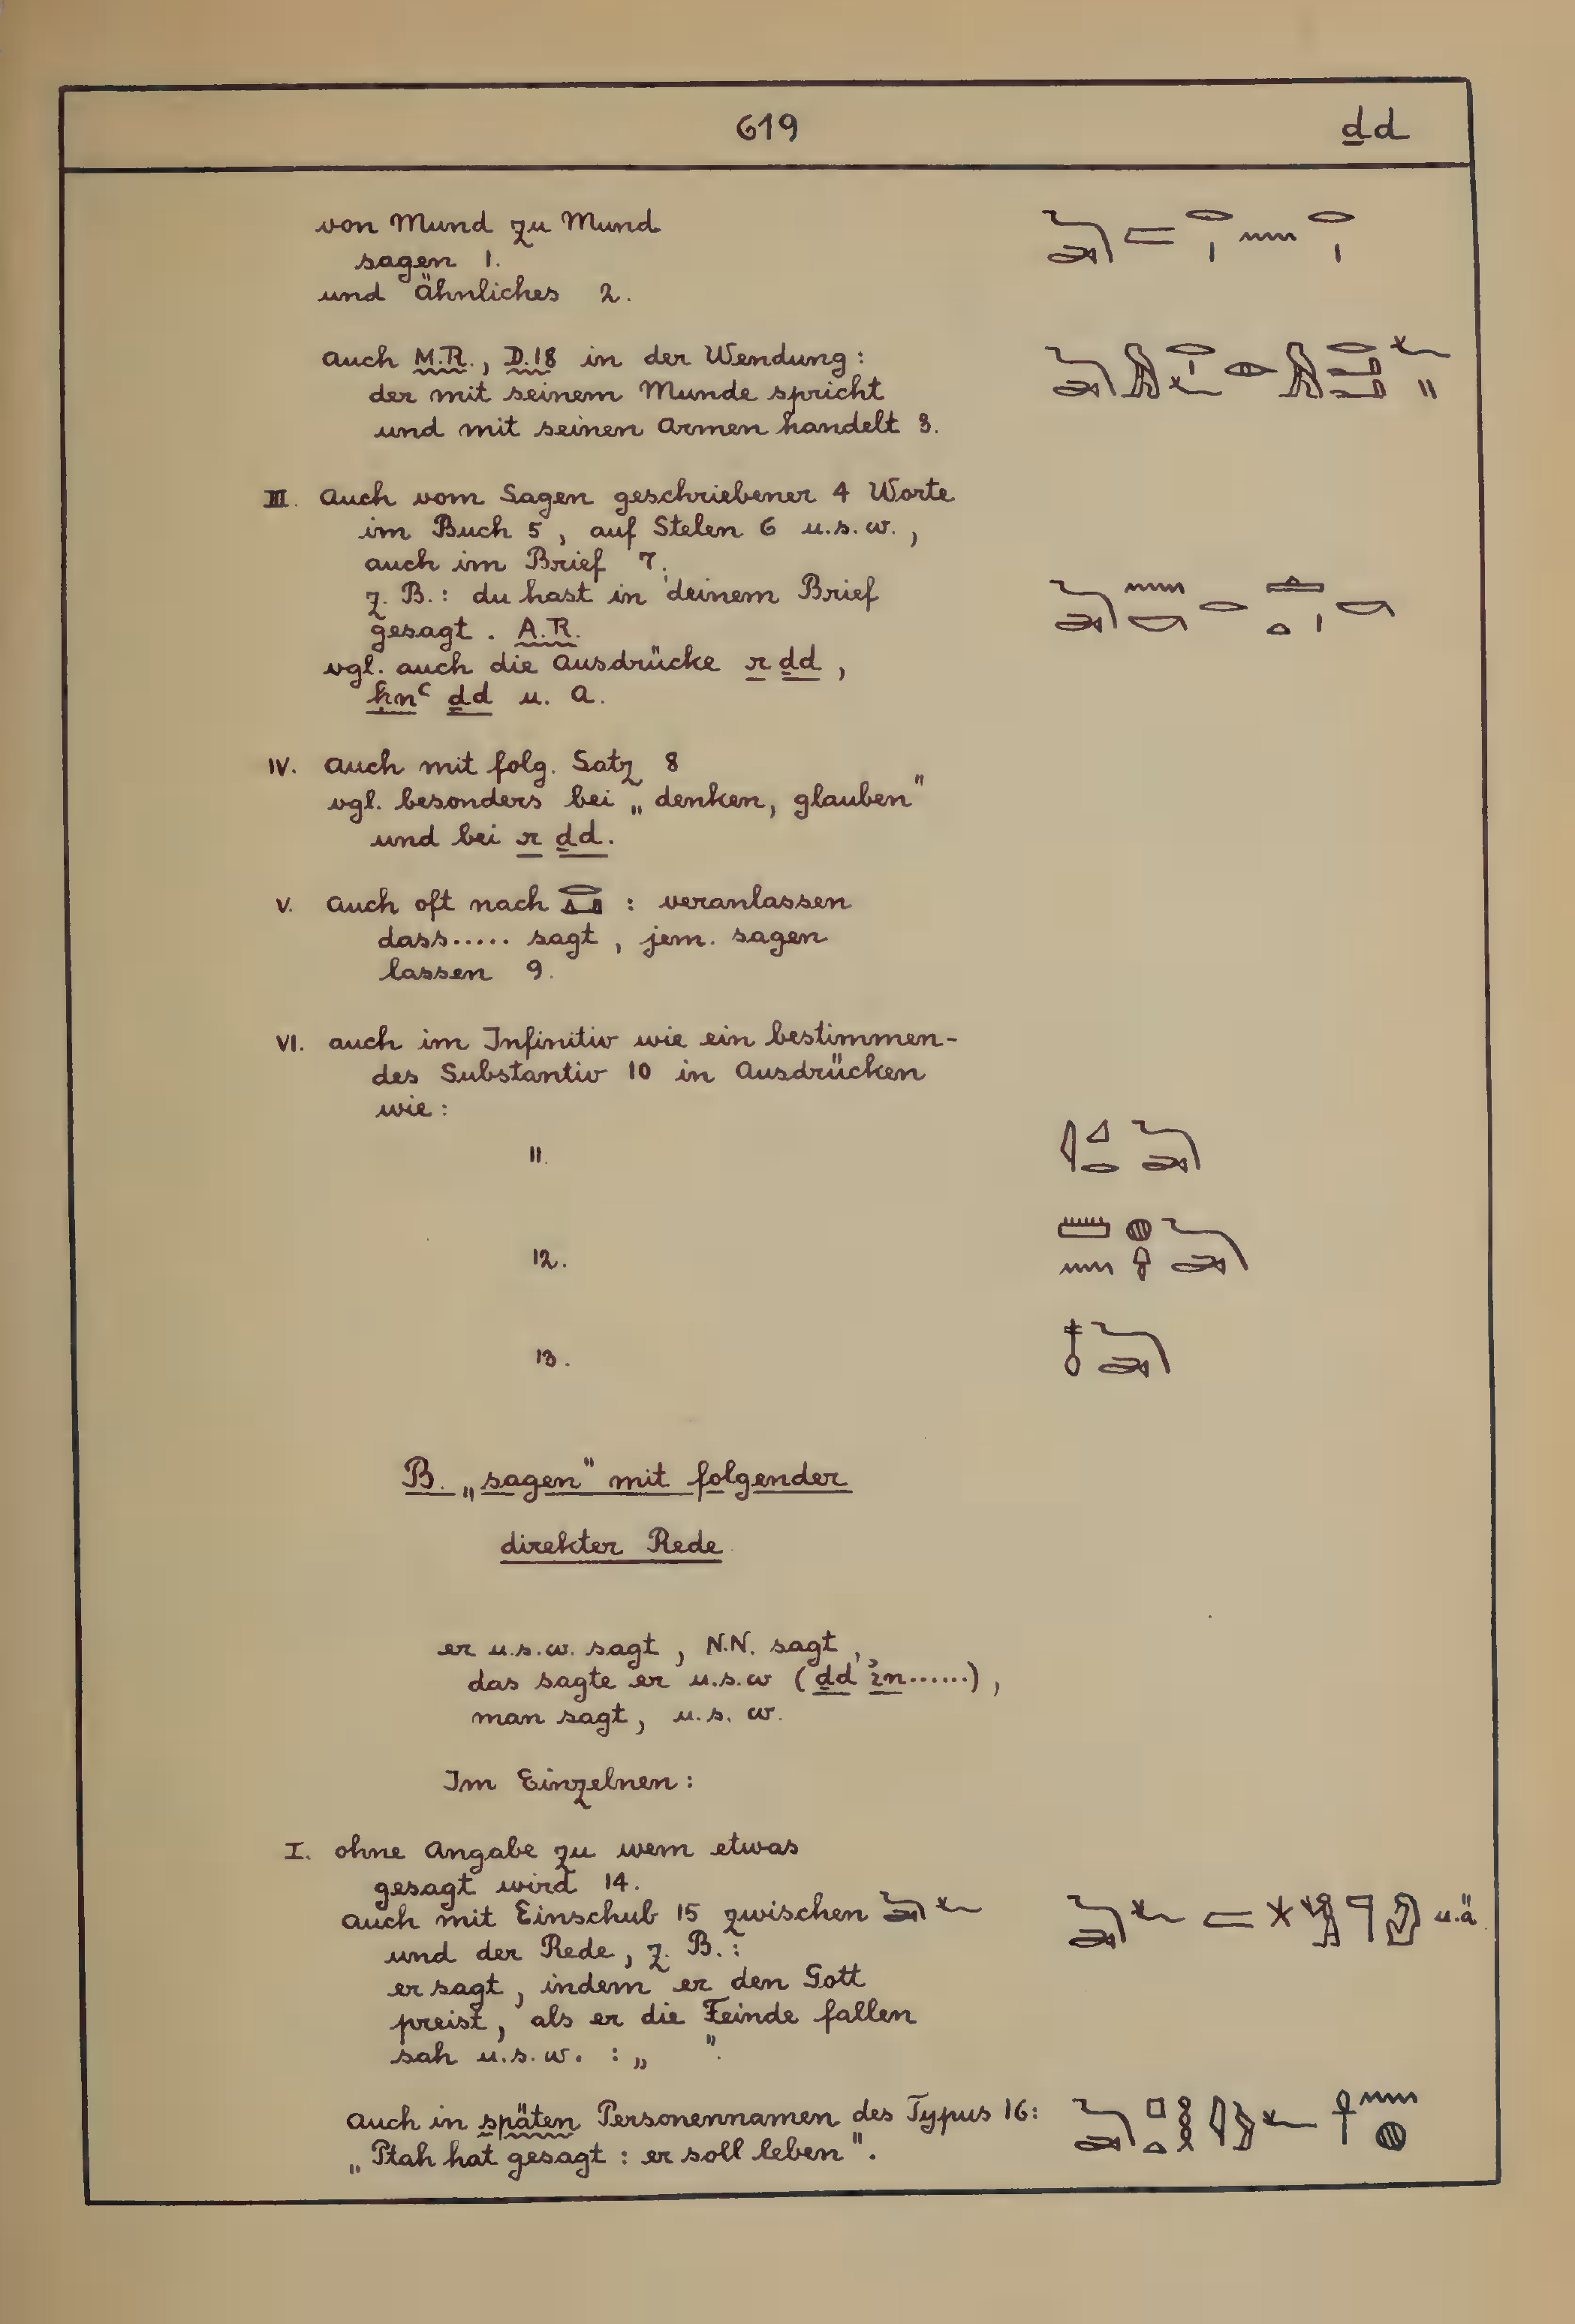 619 ḏd
von Mund zu Mund
sagen 1.
und ähnliches 2.
auch M.R., D.18 in der Wendung:
der mit seinem Munde spricht
und mit seinen Armen handelt 3.
III. Auch vom Sagen geschriebener 4 Worte
im Buch 5, auf Stelen 6 u.s.w.,
auch im Brief 7,
z. B.: du hast in deinem Brief
gesagt. A.R.
vgl. auch die Ausdrücke r ḏd,
ḥnꜥ ḏd u. a.
IV. Auch mit folg. Satz 8
vgl. besonders bei „denken, glauben"
und bei r ḏd.
V. Auch oft nach : veranlassen
dass..... sagt, jem. sagen
lassen 9.
VI. auch im Infinitiv wie ein bestimmen-
des Substantiv 10 in Ausdrücken
wie:
11.
12.
13.
B. „sagen" mit folgender
direkter Rede
er u.s.w. sagt, N.N. sagt,
das sagte er u.s.w (ḏd ỉn......),
man sagt, u.s.w.
Im Einzelnen:
I. ohne Angabe zu wem etwas
gesagt wird 14.
auch mit Einschub 15 zwischen u.ä.
und der Rede, z. B.:
er sagt, indem er den Gott
preist, als er die Feinde fallen
sah u.s.w. : „ ".
Auch in späten Personennamen des Typus 16:
„Ptah hat gesagt: er soll leben".